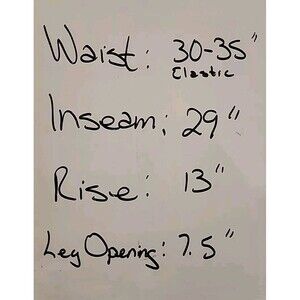 Waist: 30-35"
Elastic
Inseam: 29"
Rise: 13"
Leg Opening: 7.5"